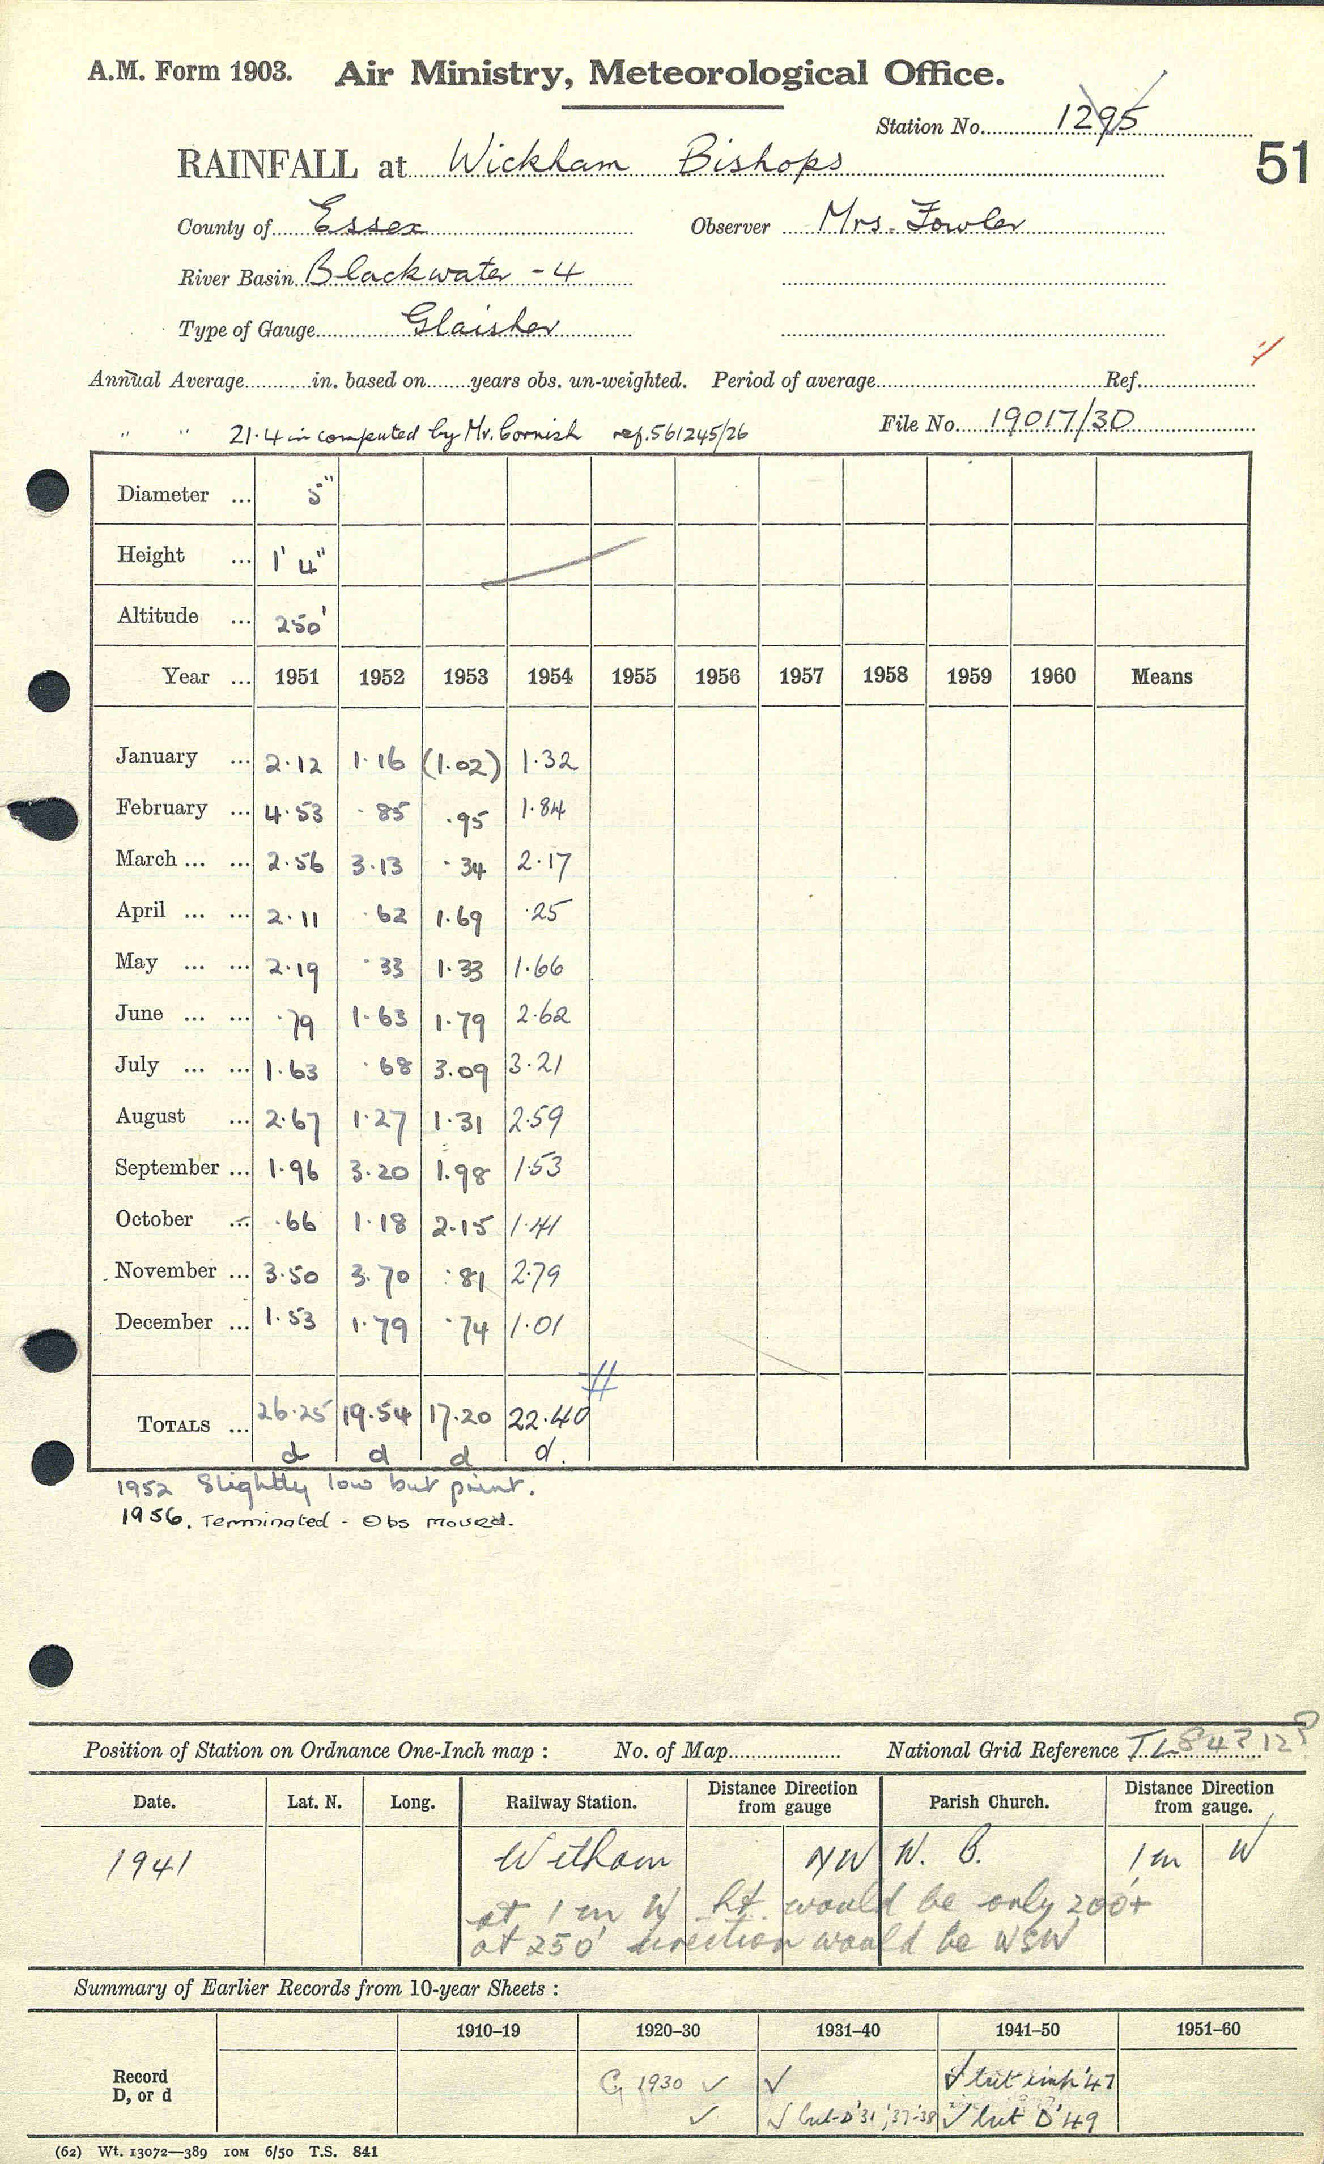 A.M. Form 1903. Air Ministry, Meteorological Office.
Station No. 1295
51
RAINFALL at Wickham Bishops
County of Essex Observer Mrs. Fowler
River Basin Blackwater - 4
Type of Gauge Glaisher
Annual Average in. based on years obs. un-weighted. Period of average Ref.
" " 21.4 in computed by Mr. Cornish ref. 561245/26 File No. 19017/30
Diameter ... 5"
Height ... 1' 4"
Altitude ... 250'
Year ... 1951 1952 1953 1954 1955 1956 1957 1958 1959 1960 Means
January ... 2.12 1.16 (1.02) 1.32
February ... 4.53 .85 .95 1.84
March ... ... 2.56 3.13 .34 2.17
April ... ... 2.11 .62 1.69 .25
May ... ... 2.19 .33 1.33 1.66
June ... ... .79 1.63 1.79 2.62
July ... ... 1.63 .68 3.09 3.21
August ... 2.67 1.27 1.31 2.59
September ... 1.96 3.20 1.98 1.53
October ... .66 1.18 2.15 1.41
November ... 3.50 3.70 .81 2.79
December ... 1.53 1.79 .74 1.01
TOTALS ... 26.25 19.54 17.20 22.40
d d d d.
1952 Slightly low but print.
1956. Terminated - Obs moved.
Position of Station on Ordnance One-Inch map : No. of Map National Grid Reference TL 84? 12?
Date. Lat. N. Long. Railway Station. Distance Direction from gauge Parish Church. Distance Direction from gauge.
1941 Witham NW W. B. 1 m W
at 1 m W ht. would be only 200+
at 250' direction would be WSW
Summary of Earlier Records from 10-year Sheets :
1910–19 1920–30 1931–40 1941–50 1951–60
Record G 1930 ✓ ✓ ✓ but imp '47
D, or d ✓ ✓ but D '31, '37-'38 ✓ but D '49
(62) Wt. 13072—389 10M 6/50 T.S. 841